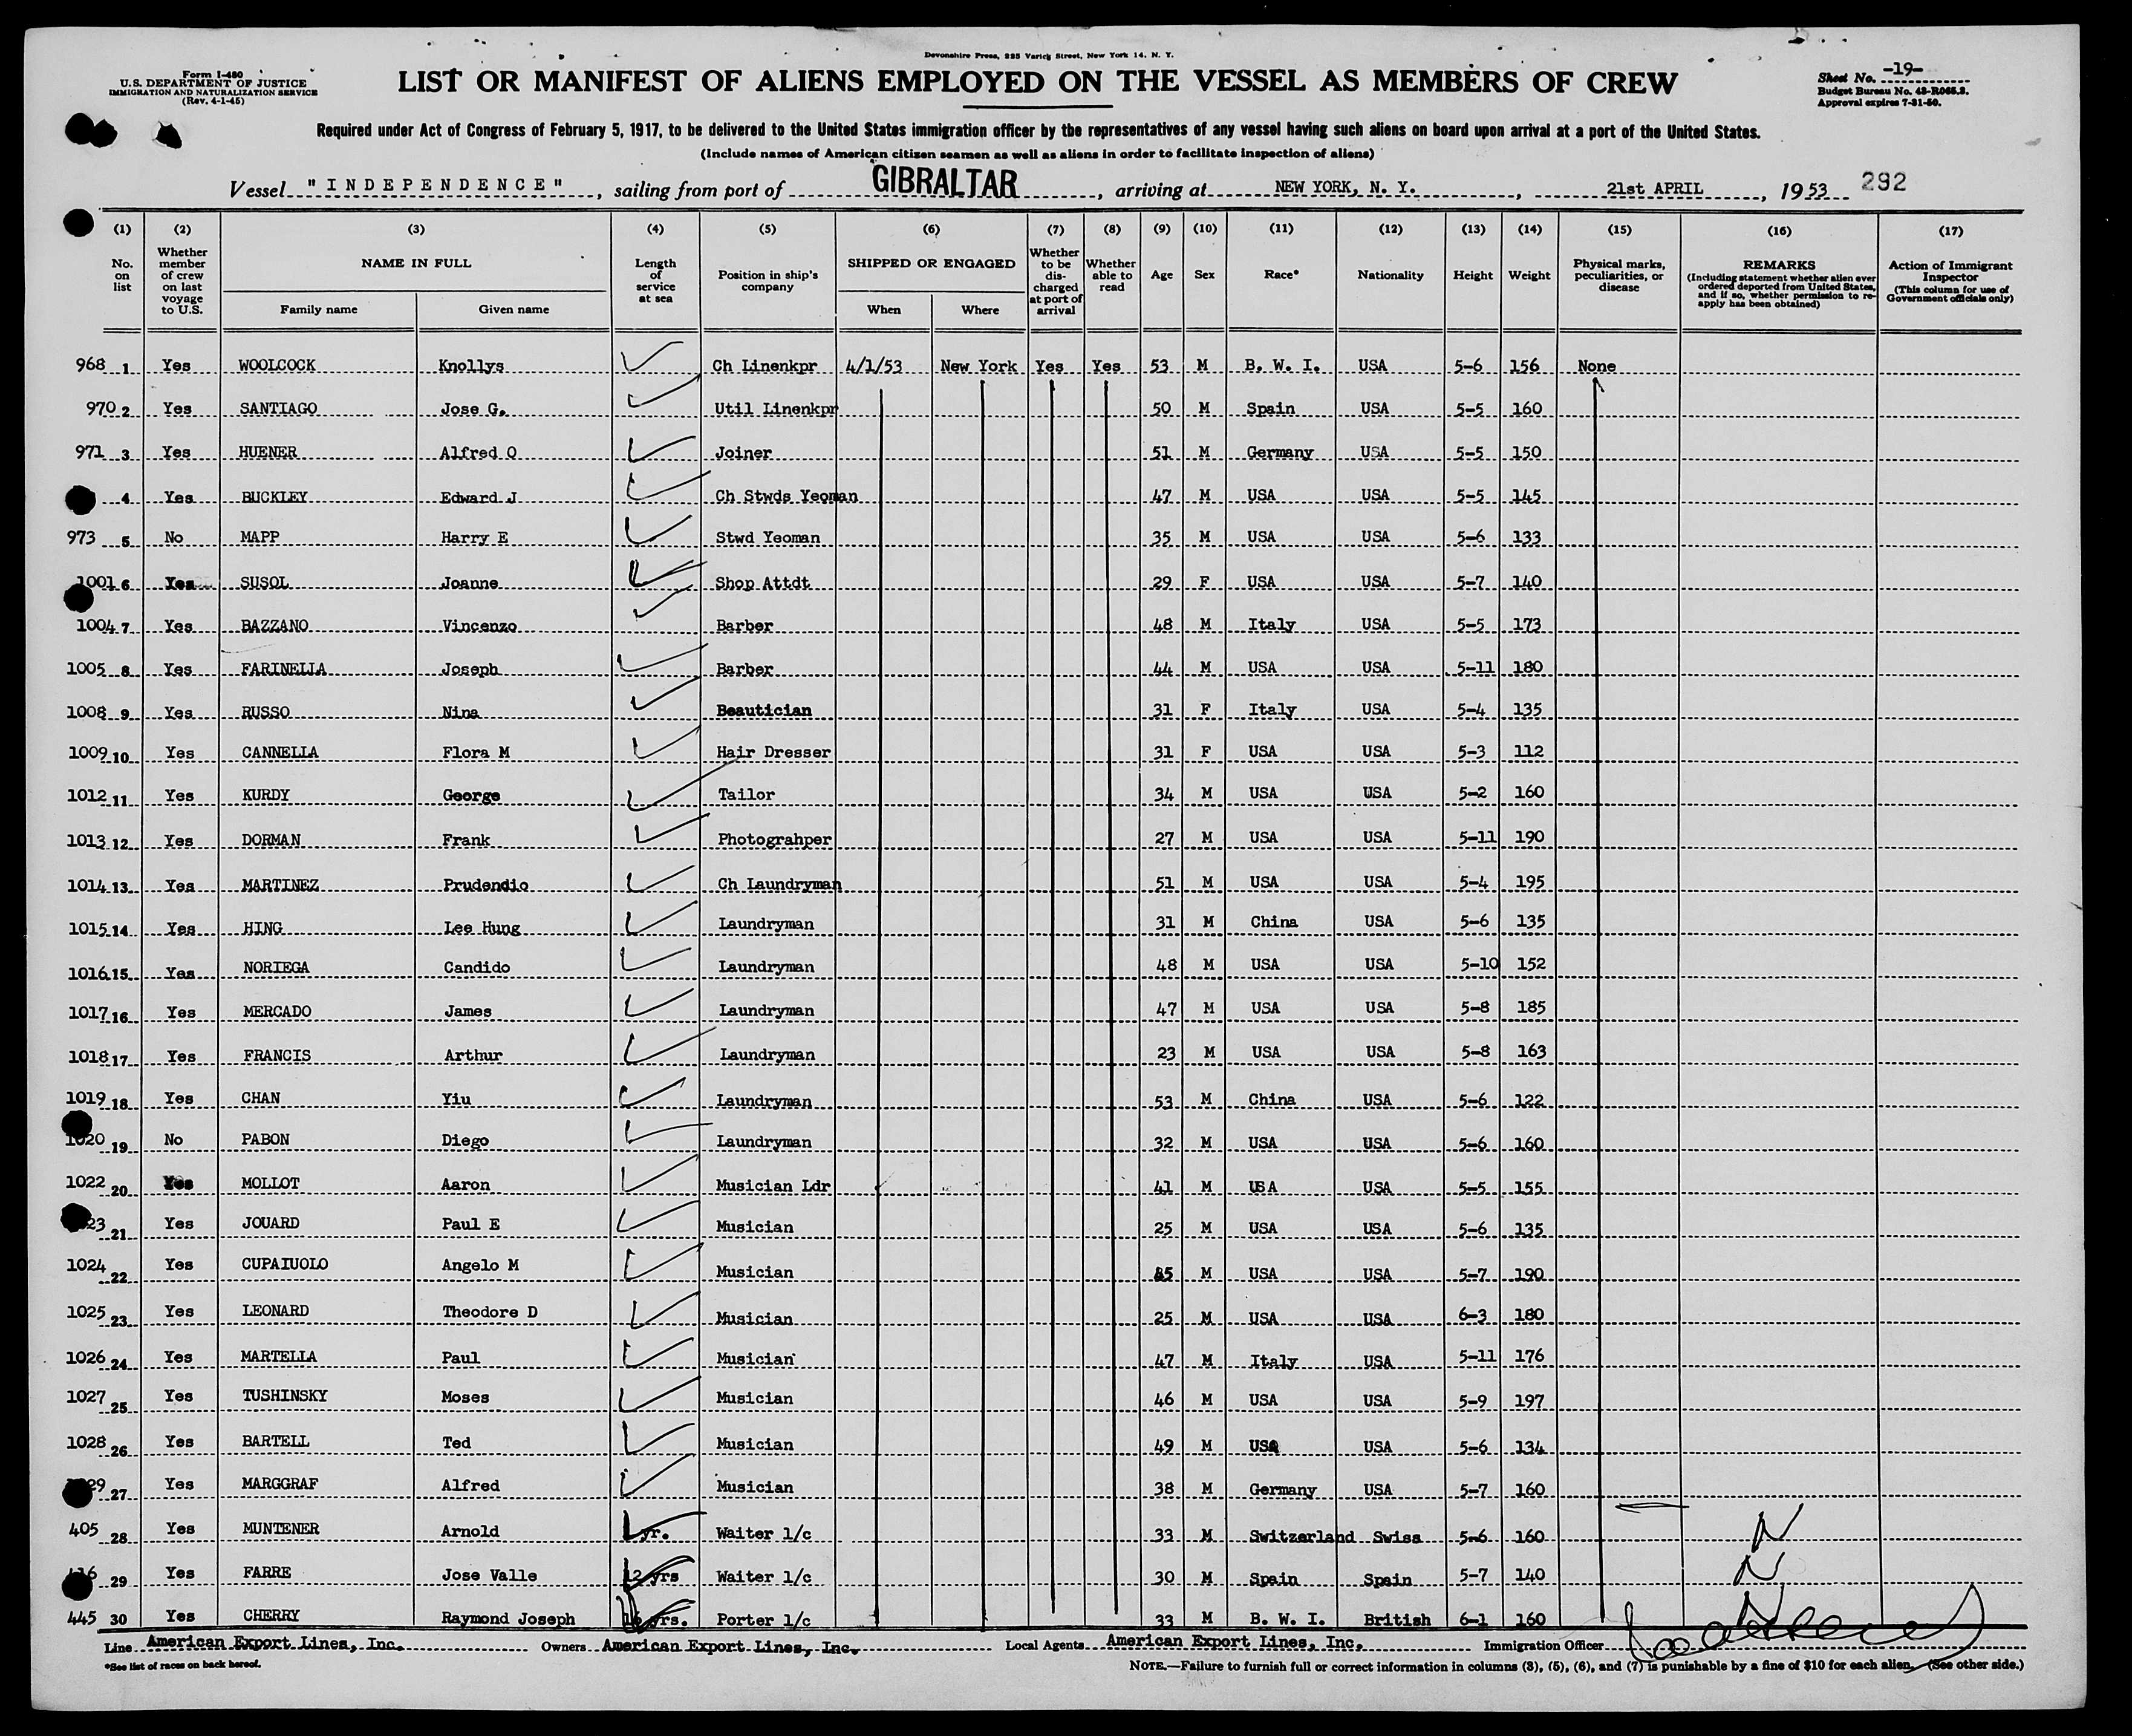 Devonshire Press, 225 Varick Street, New York 14, N. Y.
Form I-480
U.S. DEPARTMENT OF JUSTICE
IMMIGRATION AND NATURALIZATION SERVICE
(Rev. 4-1-45)
LIST OR MANIFEST OF ALIENS EMPLOYED ON THE VESSEL AS MEMBERS OF CREW
Sheet No. -19-
Budget Bureau No. 43-R065.3.
Approval expires 7-31-50.
Required under Act of Congress of February 5, 1917, to be delivered to the United States immigration officer by the representatives of any vessel having such aliens on board upon arrival at a port of the United States.
(Include names of American citizen seamen as well as aliens in order to facilitate inspection of aliens)
Vessel "INDEPENDENCE", sailing from port of GIBRALTAR, arriving at NEW YORK, N. Y., 21st APRIL, 1953 292
(1) (2) (3) (4) (5) (6) (7) (8) (9) (10) (11) (12) (13) (14) (15) (16) (17)
No. on list
Whether member of crew on last voyage to U.S.
NAME IN FULL
Family name
Given name
Length of service at sea
Position in ship's company
SHIPPED OR ENGAGED
When
Where
Whether to be discharged at port of arrival
Whether able to read
Age
Sex
Race*
Nationality
Height
Weight
Physical marks, peculiarities, or disease
REMARKS
(Including statement whether alien ever ordered deported from United States, and if so, whether permission to re-apply has been obtained)
Action of Immigrant Inspector
(This column for use of Government officials only)
968 1 Yes WOOLCOCK Knollys Ch Linenkpr 4/1/53 New York Yes Yes 53 M B. W. I. USA 5-6 156 None
970 2 Yes SANTIAGO Jose G. Util Linenkpr 50 M Spain USA 5-5 160
971 3 Yes HUENER Alfred O Joiner 51 M Germany USA 5-5 150
4 Yes BUCKLEY Edward J Ch Stwds Yeoman 47 M USA USA 5-5 145
973 5 No MAPP Harry E Stwd Yeoman 35 M USA USA 5-6 133
1001 6 Yes SUSOL Joanne Shop Attdt 29 F USA USA 5-7 140
1004 7 Yes BAZZANO Vincenzo Barber 48 M Italy USA 5-5 173
1005 8 Yes FARINELLA Joseph Barber 44 M USA USA 5-11 180
1008 9 Yes RUSSO Nina Beautician 31 F Italy USA 5-4 135
1009 10 Yes CANNELLA Flora M Hair Dresser 31 F USA USA 5-3 112
1012 11 Yes KURDY George Tailor 34 M USA USA 5-2 160
1013 12 Yes DORMAN Frank Photograhper 27 M USA USA 5-11 190
1014 13 Yes MARTINEZ Prudendio Ch Laundryman 51 M USA USA 5-4 195
1015 14 Yes HING Lee Hung Laundryman 31 M China USA 5-6 135
1016 15 Yes NORIEGA Candido Laundryman 48 M USA USA 5-10 152
1017 16 Yes MERCADO James Laundryman 47 M USA USA 5-8 185
1018 17 Yes FRANCIS Arthur Laundryman 23 M USA USA 5-8 163
1019 18 Yes CHAN Yiu Laundryman 53 M China USA 5-6 122
1020 19 No PABON Diego Laundryman 32 M USA USA 5-6 160
1022 20 Yes MOLLOT Aaron Musician Ldr 41 M USA USA 5-5 155
21 Yes JOUARD Paul E Musician 25 M USA USA 5-6 135
1024 22 Yes CUPAIUOLO Angelo M Musician M USA USA 5-7 190
1025 23 Yes LEONARD Theodore D Musician 25 M USA USA 6-3 180
1026 24 Yes MARTELLA Paul Musician 47 M Italy USA 5-11 176
1027 25 Yes TUSHINSKY Moses Musician 46 M USA USA 5-9 197
1028 26 Yes BARTELL Ted Musician 49 M USA USA 5-6 134
27 Yes MARGGRAF Alfred Musician 38 M Germany USA 5-7 160
405 28 Yes MUNTENER Arnold yr. Waiter 1/c 33 M Switzerland Swiss 5-6 160 N
29 Yes FARRE Jose Valle 12 yrs Waiter 1/c 30 M Spain Spain 5-7 140 N
445 30 Yes CHERRY Raymond Joseph yrs. Porter 1/c 33 M B. W. I. British 6-1 160
Line American Export Lines, Inc. Owners American Export Lines, Inc. Local Agents American Export Lines, Inc. Immigration Officer
*See list of races on back hereof.
NOTE.—Failure to furnish full or correct information in columns (3), (5), (6), and (7) is punishable by a fine of $10 for each alien. (See other side.)